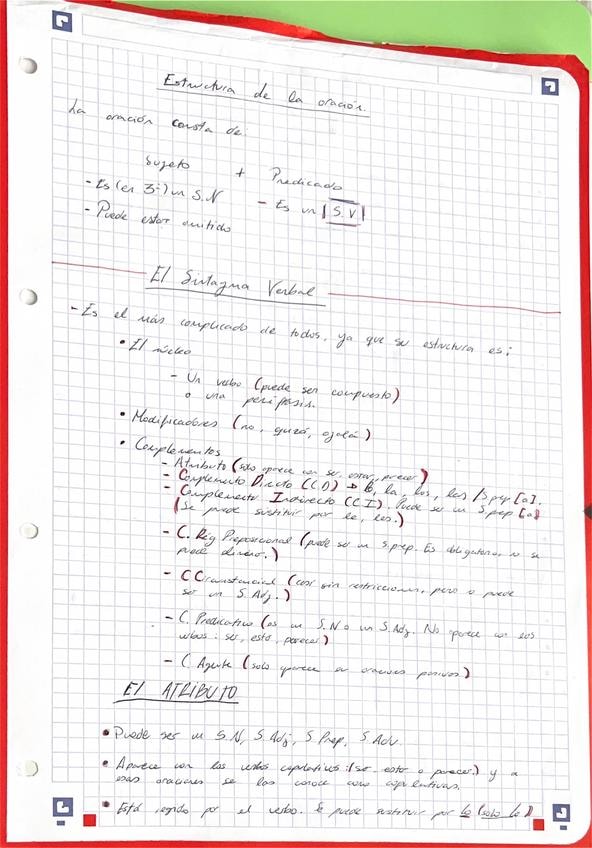 Estructura de la oración.
La oración consta de:
Sujeto + Predicado
- Es (en 3ª) un S.N - Es un S.V
- Puede estar omitido
El Sintagma Verbal
- Es el más complicado de todos, ya que su estructura es:
• El núcleo
- Un verbo (puede ser compuesto)
o una perífrasis.
• Modificadores (no, quizá, ojalá)
• Complementos
- Atributo (solo aparece con ser, estar, parecer)
- Complemento Directo (CD) → lo, la, los, las / S.prep [a].
- Complemento Indirecto (CI). Puede ser un S.prep [a]
(Se puede sustituir por le, les.)
- C. Reg Preposicional (puede ser un S.prep. Es obligatorio, no se
puede)
- C Circunstancial (casi sin restricciones, pero no puede
ser un S.Adj.)
- C. Predicativo (es un S.N o un S.Adj. No aparece con los
verbos: ser, estar, parecer)
- C. Agente (solo aparece en oraciones pasivas)
El ATRIBUTO
• Puede ser un S.N, S Adj, S Prep, S Adv.
• Aparece con los verbos copulativos: (ser, estar o parecer) y a
esas oraciones se las conoce como copulativas.
• Está regido por el verbo. Se puede sustituir por lo (solo lo)